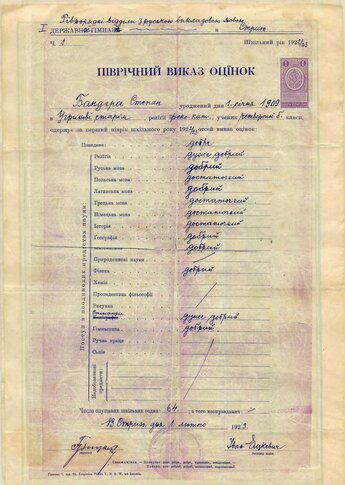 Рівнорядні відділи з руською викладовою мовою
I ДЕРЖАВНА ГІМНАЗІЯ в Стрию
Ч. 1 Шкільний рік 1922/23
ПІВРІЧНИЙ ВИКАЗ ОЦІНОК
Бандера Степан уроджений дня 1 січня 1909
в Угринові старім, релігії греко-кат., ученик четвертої б. кляси,
одержує за перший піврік шкільного року 1922/23 отсей виказ оцінок:
Поведінка: добра
Поступ в поодиноких предметах науки:
Релігія дуже добрий
Руська мова добрий
Польська мова достаточний
Латинська мова добрий
Грецька мова достаточний
Німецька мова достаточний
Історія достаточний
Географія добрий
добрий
Природописні науки
Фізика добрий
Хемія
Пропедевтика фільософії
Рисунки
дуже добрий
Гімнастика добрий
Ручна праця
Спів
Надобовязкові предмети:
Число опущених шкільних годин: 64, а того несправданих:
В Стрию, дня 1 лютого 1923.